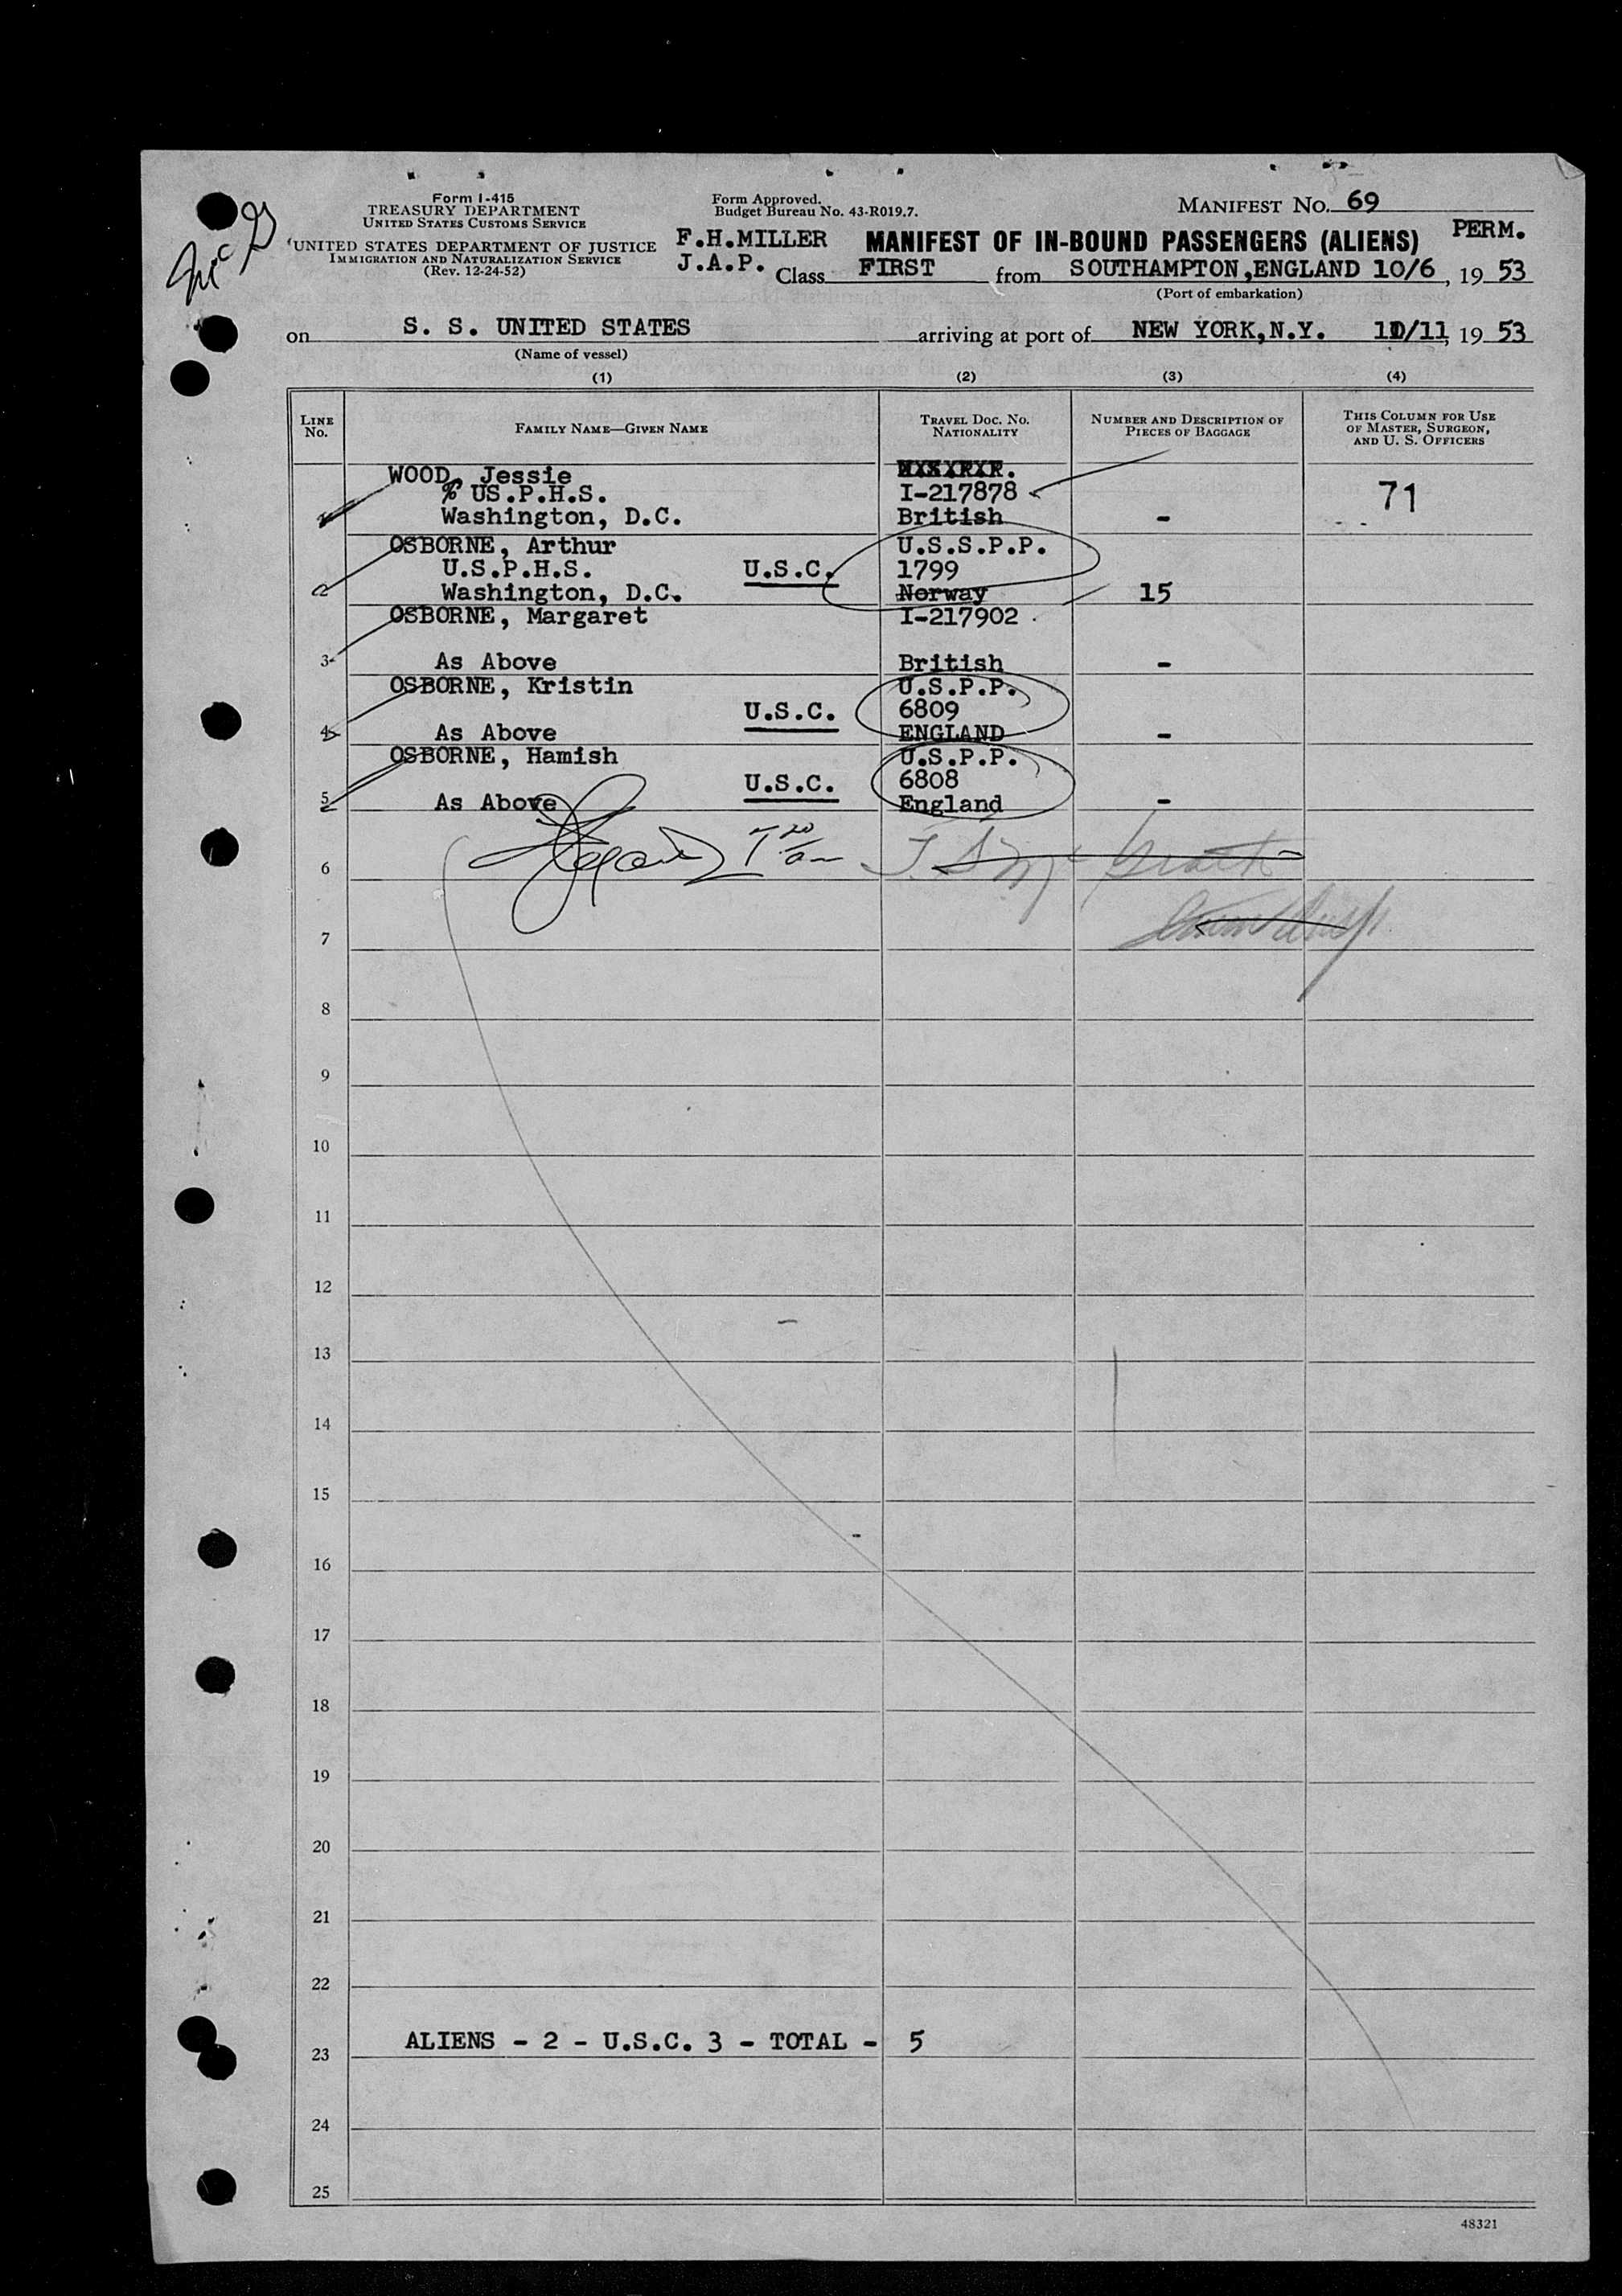 McG
Form I-415
TREASURY DEPARTMENT
UNITED STATES CUSTOMS SERVICE
UNITED STATES DEPARTMENT OF JUSTICE
IMMIGRATION AND NATURALIZATION SERVICE
(Rev. 12-24-52)
Form Approved.
Budget Bureau No. 43-R019.7.
MANIFEST No. 69
F.H.MILLER MANIFEST OF IN-BOUND PASSENGERS (ALIENS) PERM.
J.A.P. Class FIRST from SOUTHAMPTON,ENGLAND 10/6, 19 53
(Port of embarkation)
on S. S. UNITED STATES arriving at port of NEW YORK,N.Y. 10/11, 19 53
(Name of vessel)
(1) (2) (3) (4)
LINE No. FAMILY NAME—GIVEN NAME TRAVEL DOC. NO. NATIONALITY NUMBER AND DESCRIPTION OF PIECES OF BAGGAGE THIS COLUMN FOR USE OF MASTER, SURGEON, AND U. S. OFFICERS
WOOD, Jessie
% US.P.H.S. I-217878 71
Washington, D.C. British -
OSBORNE, Arthur U.S.S.P.P.
U.S.P.H.S. U.S.C. 1799
2 Washington, D.C. Norway 15
OSBORNE, Margaret I-217902
3 As Above British -
OSBORNE, Kristin U.S.P.P.
U.S.C. 6809
4 As Above ENGLAND -
OSBORNE, Hamish U.S.P.P.
U.S.C. 6808
5 As Above England -
6
7
8
9
10
11
12
13
14
15
16
17
18
19
20
21
22
23 ALIENS - 2 - U.S.C. 3 - TOTAL - 5
24
25
48321